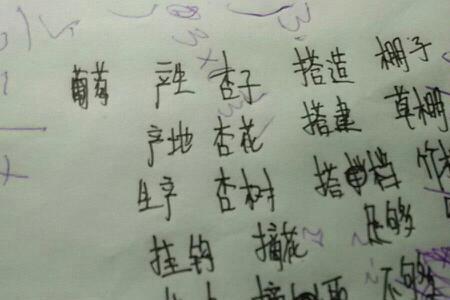 葡萄 产生 杏子 搭造 棚子
产地 杏花 搭建 草棚
生产 杏树 搭档 竹
挂钩 摘花 足够
不够